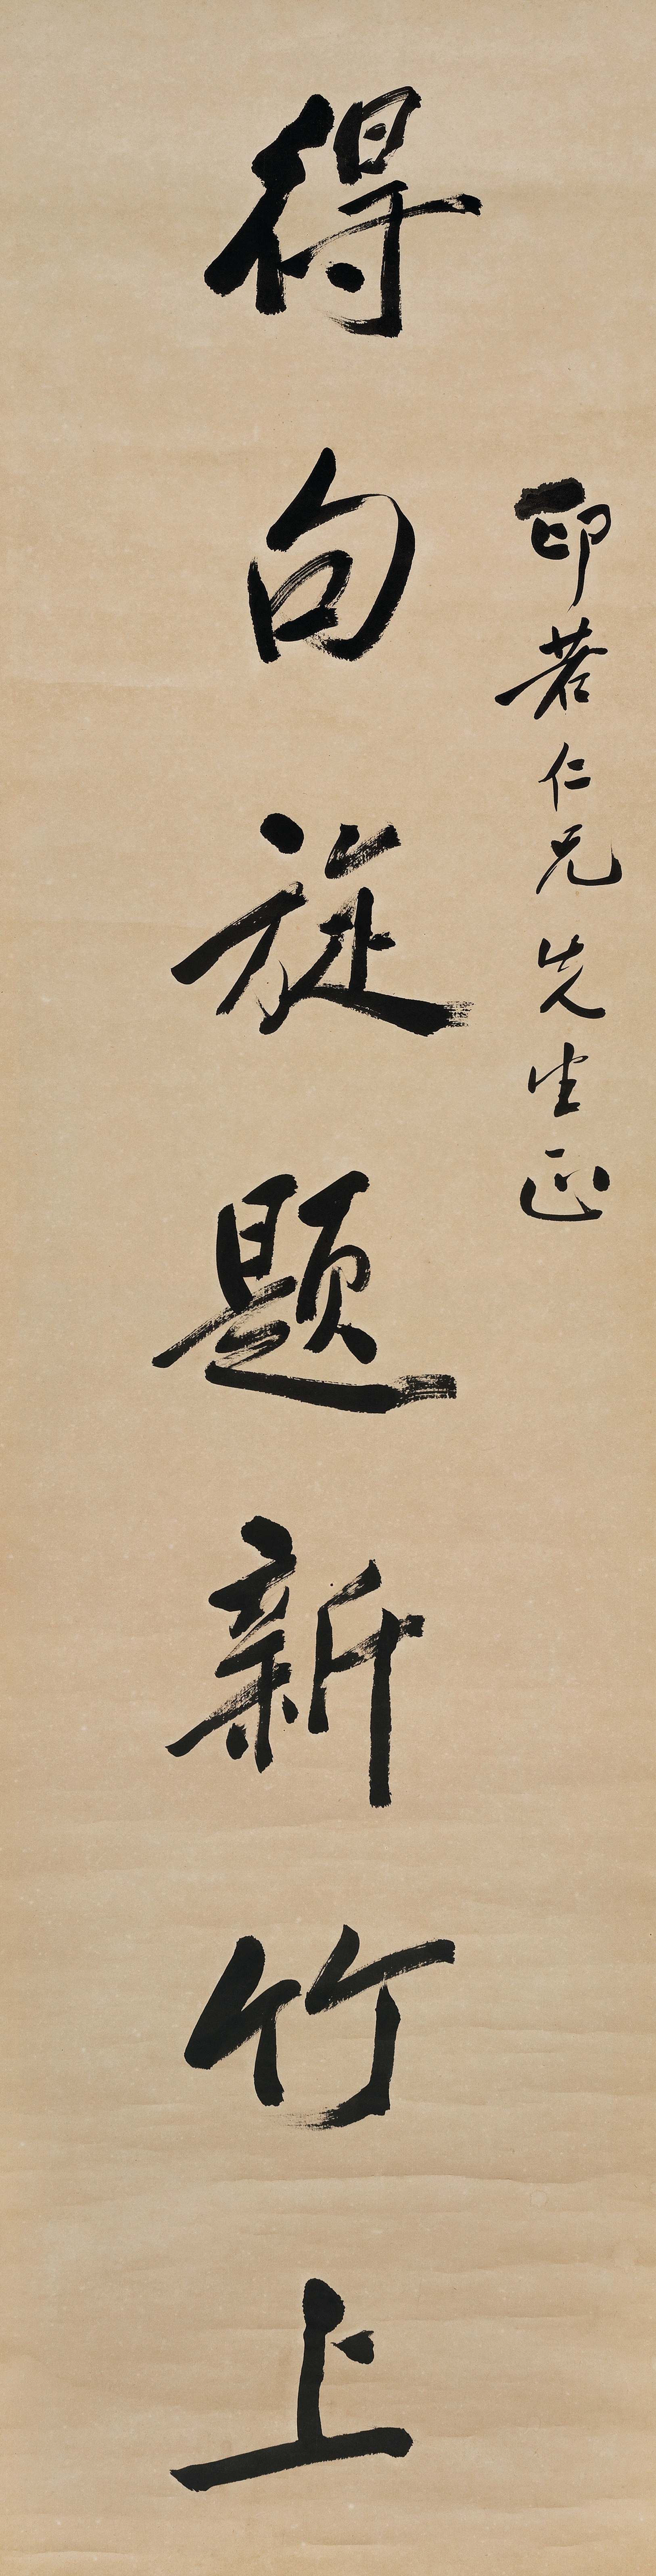 印若仁兄先生正
得句旋題新竹上